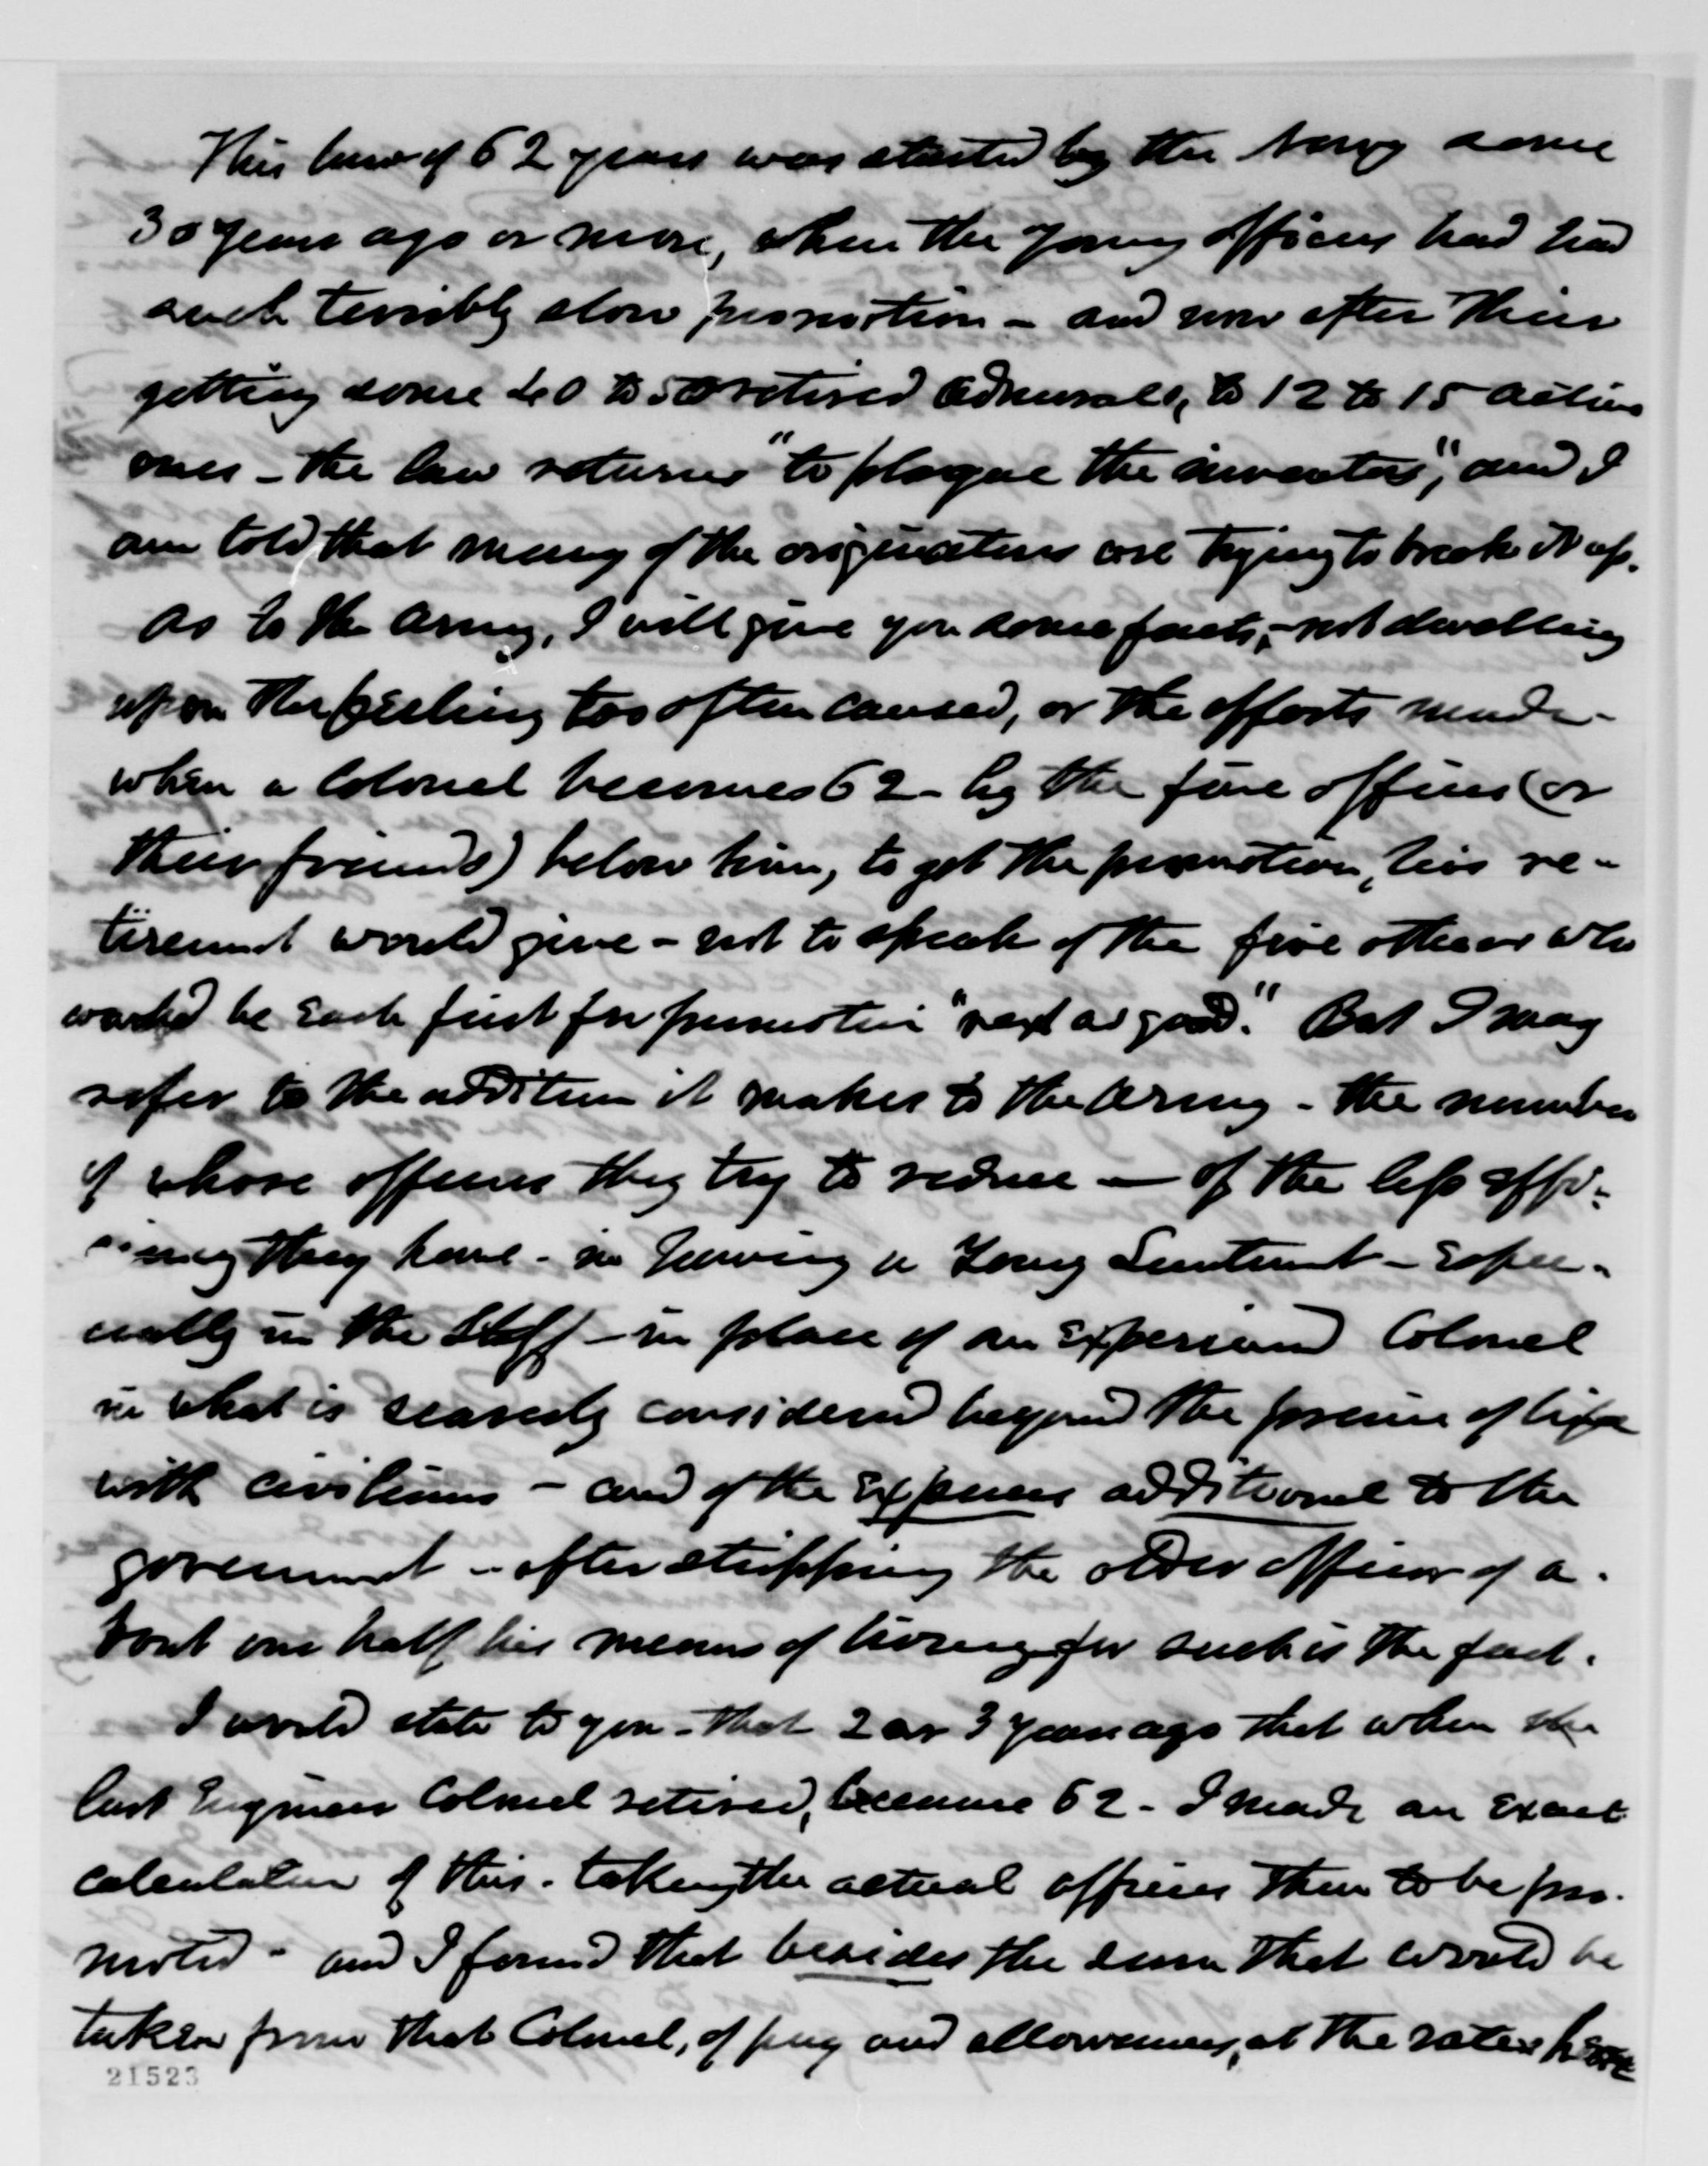 This law of 62 years was started by the Navy some
30 years ago or more, when the young officers had had
such terribly slow promotion - and now after their
getting some 40 to 50 retired Admirals, to 12 to 15 active
ones - the law returns "to plague the inventors", and I
am told, that many of the originators are trying to break it up.
As to the Army, I will give you some facts, - not dwelling
upon the feeling too often caused, or the efforts made -
when a Colonel becomes 62 - by the five officers (or
their friends) below him, to get the promotion, his re-
tirement would give - not to speak of the five others who
would be each first for promotion "next as good." But I may
refer to the addition it makes to the Army - the number
of whose officers they try to reduce — of the less effi-
ciency they have - in having a Young Lieutenant - Espe-
cially in the Staff - in place of an Experienced Colonel
in what is scarcely considered beyond the prime of life
with civilians - and of the Expenses additional to the
government - after stripping the older officer of a-
bout one half his means of living for such is the fact.
I would state to you - that 2 or 3 years ago that when the
last Engineer Colonel retired, became 62 - I made an Exact
calculation of this - taking the actual officers then to be pro-
moted - and I found that besides the sum that would be
taken from that Colonel, of pay and allowances, at the rates here
21523